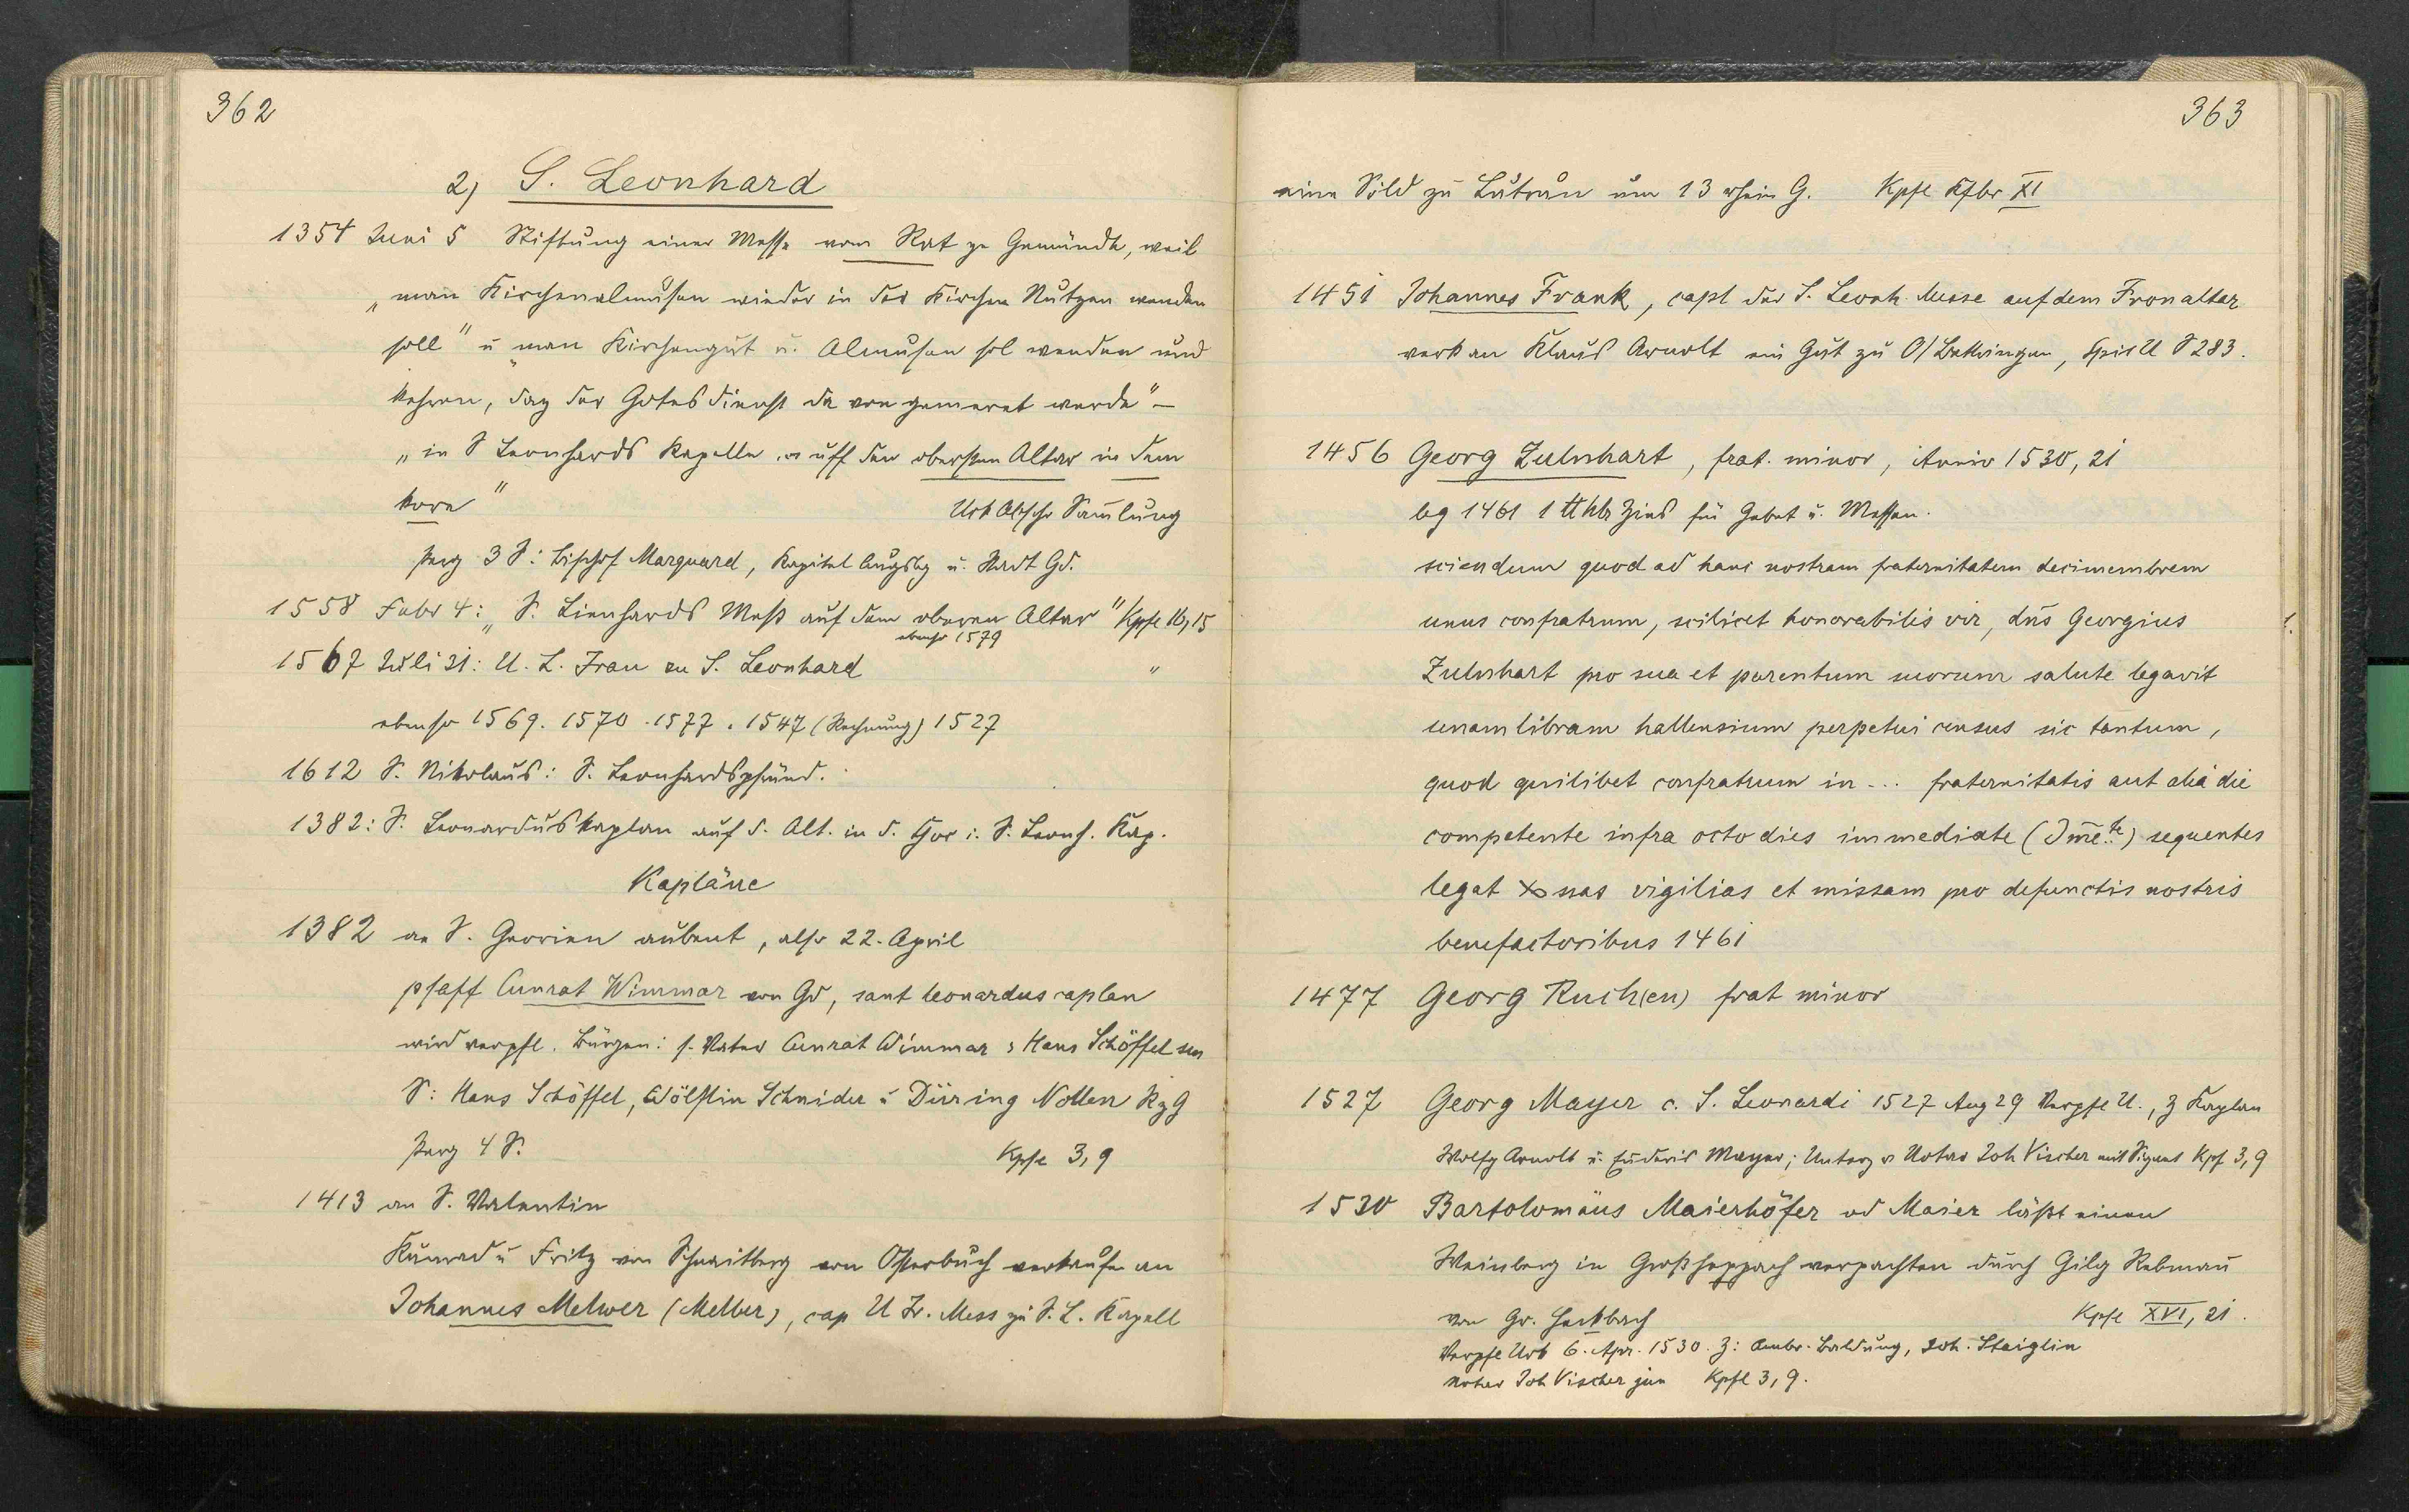 362
2) S. Leonhard
1354 Juni 5 Stiftung einer Messe vom Rat ze Gemünde, weil
"man Kirchenalmusen wieder in der Kirchen Nutzen wenden
soll" u "man Kirchengut u. Almusen sol wenden und
kehren, daz der Gotesdienst da von gemeret werde" –
"in S Leonhards Kapelle uff den obersten Altar in dem
kore" Urk Abschr Sam̄lung
Perg 3 S: Bischof Marquard, Kapitel Augsbg u. Stadt Gd.
1558 Febr 4: "S. Lienhards Meß auf dem oberen Altar" Kpfl 16,15
ebenso 1579
1567 Juli 31: U. L. Frau zu S. Leonhard "
ebenso 1569. 1570. 1577. 1547 (Rechnung) 1527
1612 S. Nikolaus: S. Leonhardspfründ.
1382: S. Leonarduskaplan auf d. Alt. in d. Chor i. S. Leonh. Kap.
Kapläne
1382 an S. Georien aubent, also 22. April
pfaff Cunrat Wimmar von Gd, sant leonardus caplan
wird verpfl. Bürgen: s. Vater Cunrat Wimmar, Hans Schöffel sen
S: Hans Schöffel, Wölflin Schnider u Dürring Nollen RzG
Perg 4 S. Kpfl 3,9
1413 an S. Valentin
Kunrad u Fritz von Schnaitberg von Osterbuch verkaufen an
Johannes Melwer (Melber), cap U Fr. Mess zu S. L. Kapell
363
eine Söld zu Lutran um 13 rhein G. Kpfl XI
1451 Johannes Frank, capl der S. Leonh. Messe auf dem Fronaltar
verk an Klaus Arnolt ein Gut zu O/Bettringen, Spit U S 283.
1456 Georg Zulnhart, frat. minor, Anniv 1530, 21
leg 1461 1 ℔ hlr Zins für Gebet u. Messen.
sciendum quod ad hanc nostram fraternitatem decimembrem
unus confratrum, scilicet honorabilis vir, dn̄s Georgius
Zulnhart pro sua et parentum suorum salute legavit
unam libram hallensium perpetui census sic tantum,
quod quilibet confratrum in ... fraternitatis aut alia die
competente infra octo dies immediate (Im̄e..te) sequentes
legat nas vigilias et missam pro defunctis nostris
benefactoribus 1461
1477 Georg Ruch(en) frat minor
1527 Georg Mayer c. S. Leonardi 1527 Aug 29 Verpfl U., Z Kaplan
Wolfg Arnolt u. Mayer; Unterz v Notar Joh Vischer mit Signet Kpf 3,9
1530 Bartolomäus Maierhöfer od Maier läßt einen
Weinberg in Großheppach verpachten durch Gilg Rebman̄
von Gr. Heckbach Kpfl XVI, 21.
Verpfl Urk 6. Apr. 1530. Z: Ambr. Baldung, Joh. Staiglin
Notar Joh Vischer jun Kpfl 3,9.